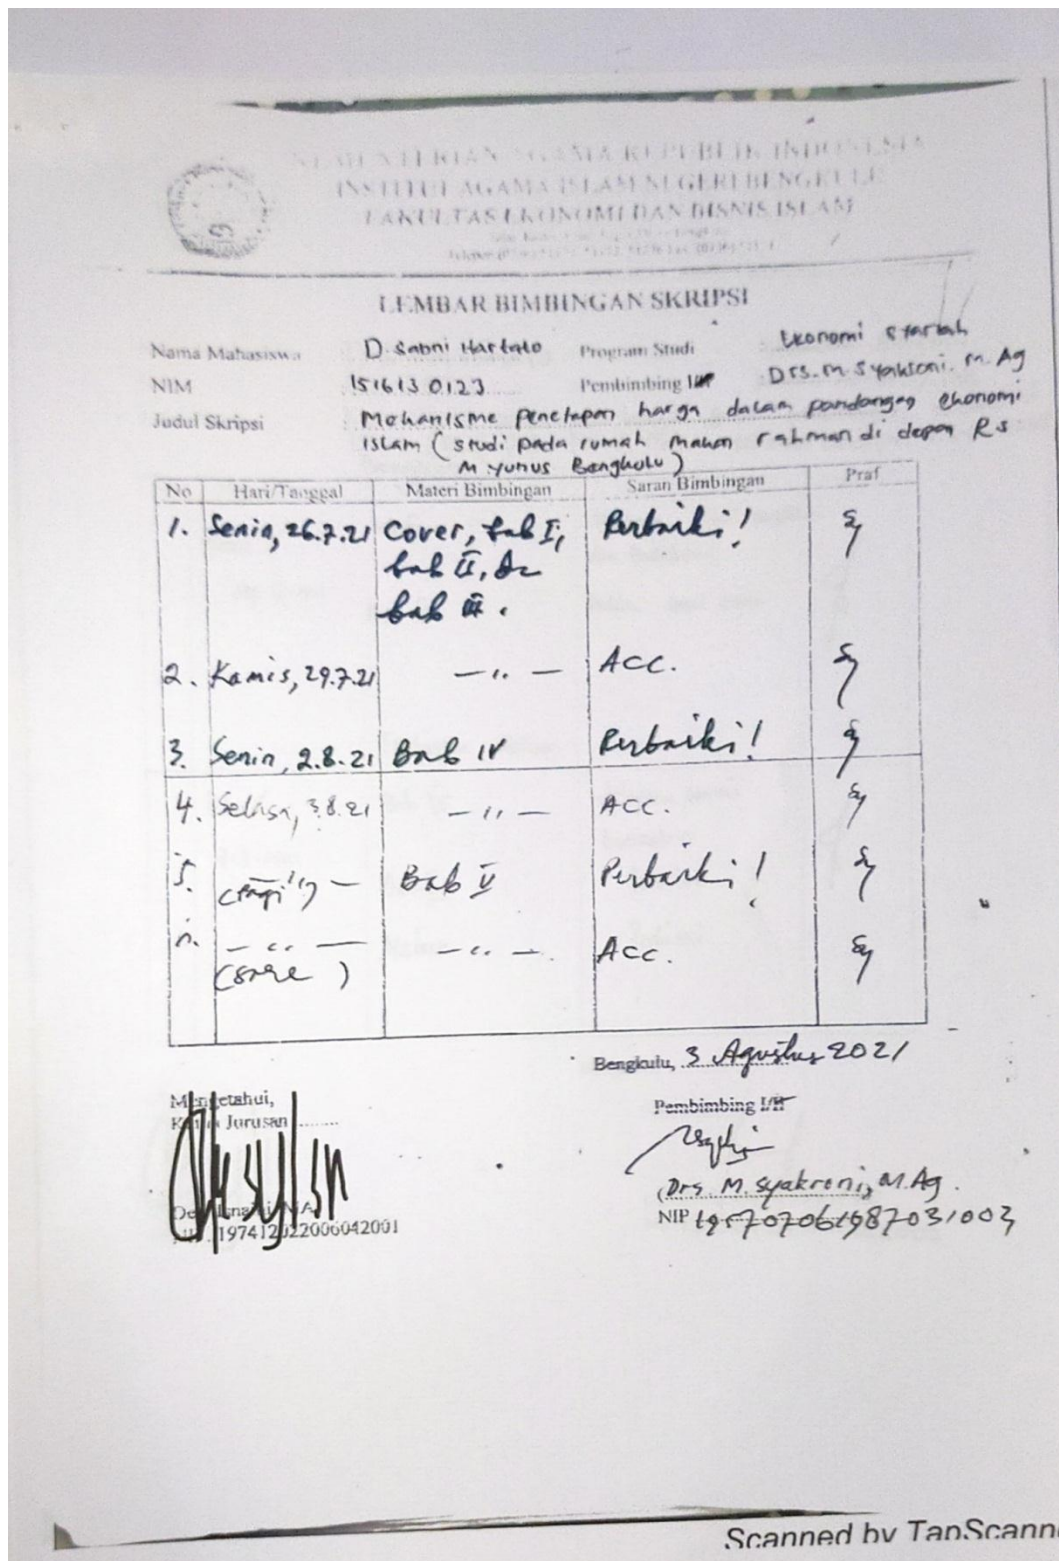 KEMENTERIAN AGAMA REPUBLIK INDONESIA
INSTITUT AGAMA ISLAM NEGERI BENGKULU
FAKULTAS EKONOMI DAN BISNIS ISLAM
LEMBAR BIMBINGAN SKRIPSI
Nama Mahasiswa D. Sabni Hartato Program Studi Ekonomi Syariah
NIM 151613 0123 Pembimbing I/II Drs. M. Syakroni. M. Ag
Judul Skripsi : Mekanisme penetapan harga dalam pandangan ekonomi
Islam (studi pada rumah makan rahman di depan RS
M Yunus Bengkulu)
No Hari/Tanggal Materi Bimbingan Saran Bimbingan Praf
1. Senin, 26.7.21 Cover, bab I, Perbaiki!
bab II, &
bab III.
2. Kamis, 29.7.21 — ,, — ACC.
3. Senin, 2.8.21 Bab IV Perbaiki!
4. Selasa, 3.8.21 — ,, — ACC.
5. (Pagi) — Bab V Perbaiki!
— ,, — — ,, — ACC.
(Sore)
Bengkulu, 3 Agustus 2021
Mengetahui,
Ketua Jurusan
Pembimbing I/II
(Drs. M. Syakroni, M.Ag.
197412022006042001
NIP 195707061987031003
Scanned by TapScanne